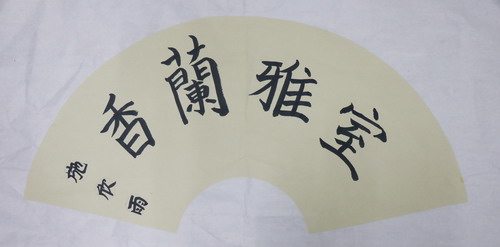 室雅蘭香
施欣雨